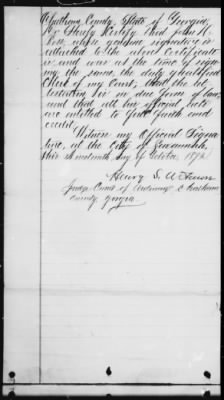 Chatham County, State of Georgia,
do hereby Certify that John R.
whose genuine signature is
attached to the above Certificate
is and was at the time of sign
ing the same, the duly qualified
Clerk of my Court, that the at
testation is in due form of law
and that all his official acts
are entitled to full faith and
credit.
Witness my official signa
ture, at the City of Savannah,
this Seventeenth day of October 1892
Henry
Judge Court of Ordinary Chatham
County Georgia